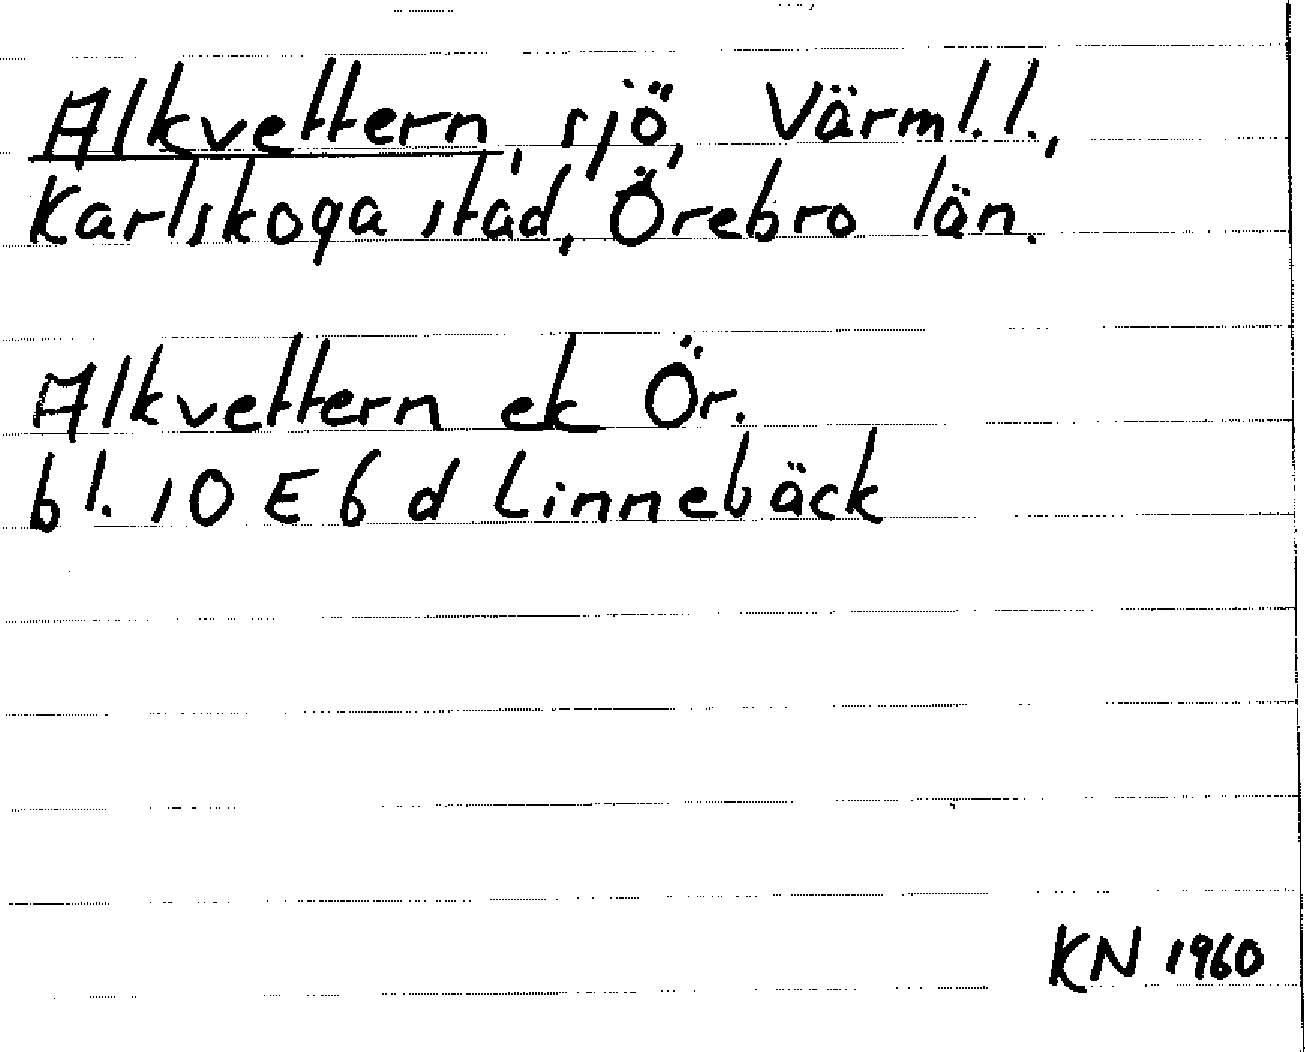 Alkvettern, sjö, Värml.l.,
Karlskoga stad, Örebro län.
Alkvettern ek Ör.
bl. 10 E 6 d Linnebäck
KN 1960